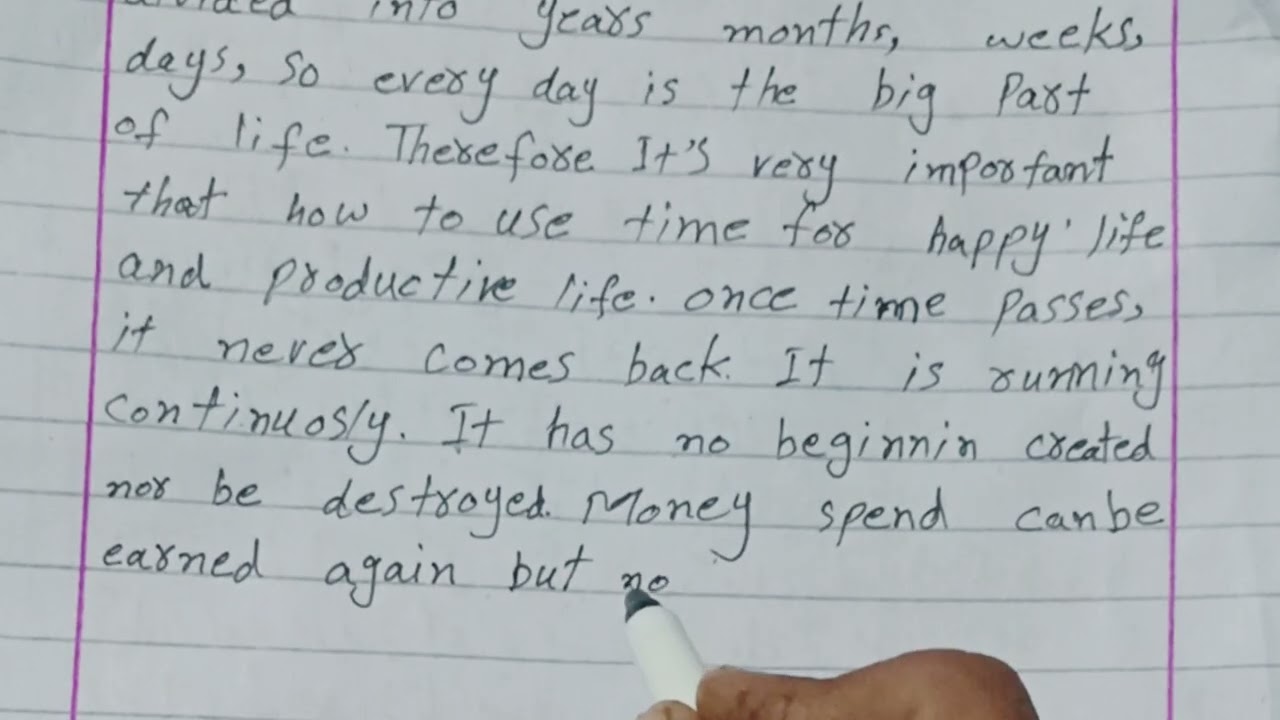 into years months, weeks,
days, so every day is the big Part
of life. Therefore It's very important
that how to use time for happy life
and productive life. once time Passes,
it never comes back. It is running
continuosly. It has no beginnin created
nor be destroyed. Money spend canbe
earned again but no